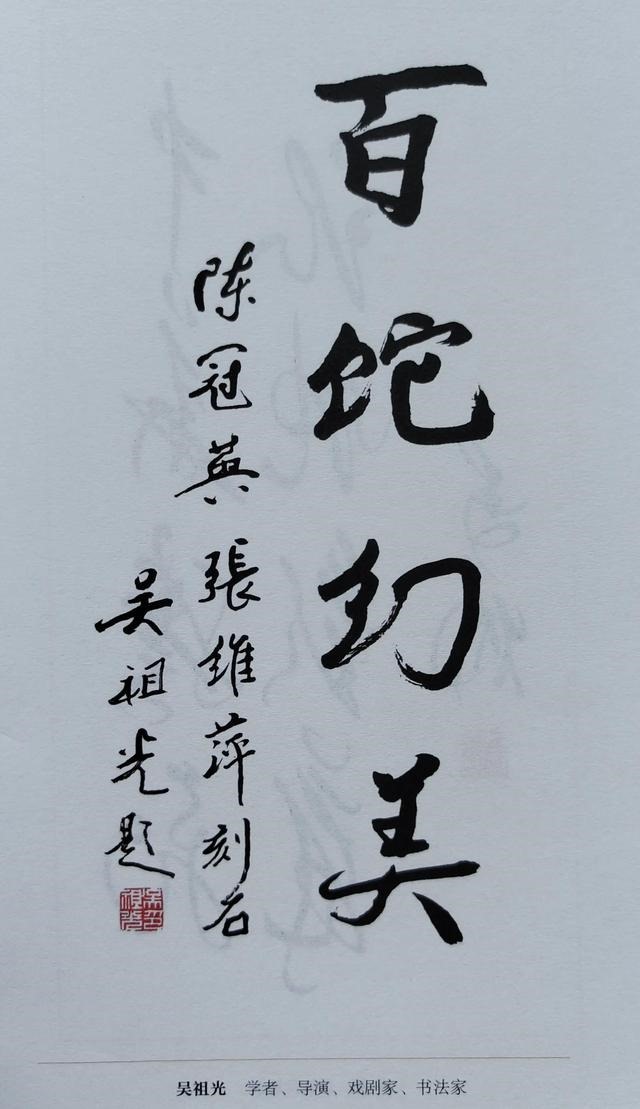 百蛇幻美
陈冠英張维萍刻石
吴祖光题
吴祖光 学者、导演、戏剧家、书法家